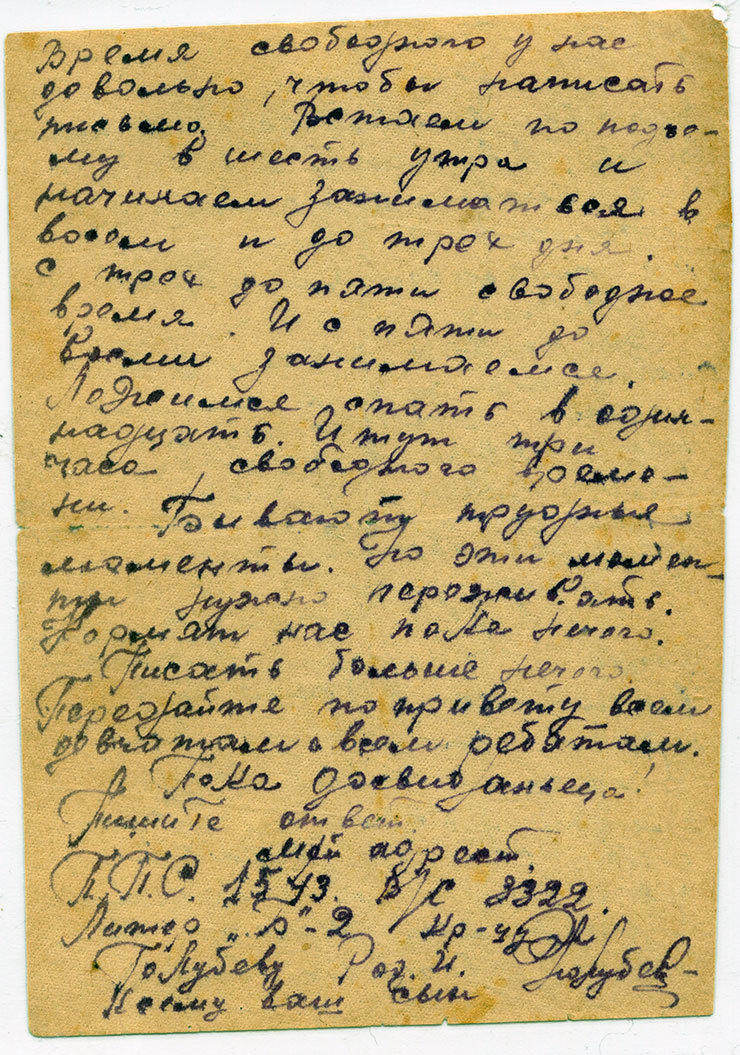 Время свободного у нас
довольно, чтобы написать
письмо. Встаем по подъё-
му в шесть утра и
начинаем заниматься в
восем и до трех дня.
С трех до пяти свободное
время. И с пяти до
восьми занимаемся.
Ложимся спать в один-
надцать. И тут три
часа свободного време-
ни. Бывают трудные
моменты. Но эти момен-
ты нужно переживать.
Кормят нас пока ничого.
Писать больше нечого.
Передайте по привету всем
девчатам и всем ребятам.
Пока досвиданьеца!
Пишите ответ.
Мой адрест.
П.П.С. 1543. В/С 3322.
Литер „Б"-2 Кр-цу
Голубеву И. Голубев
Ваш сын